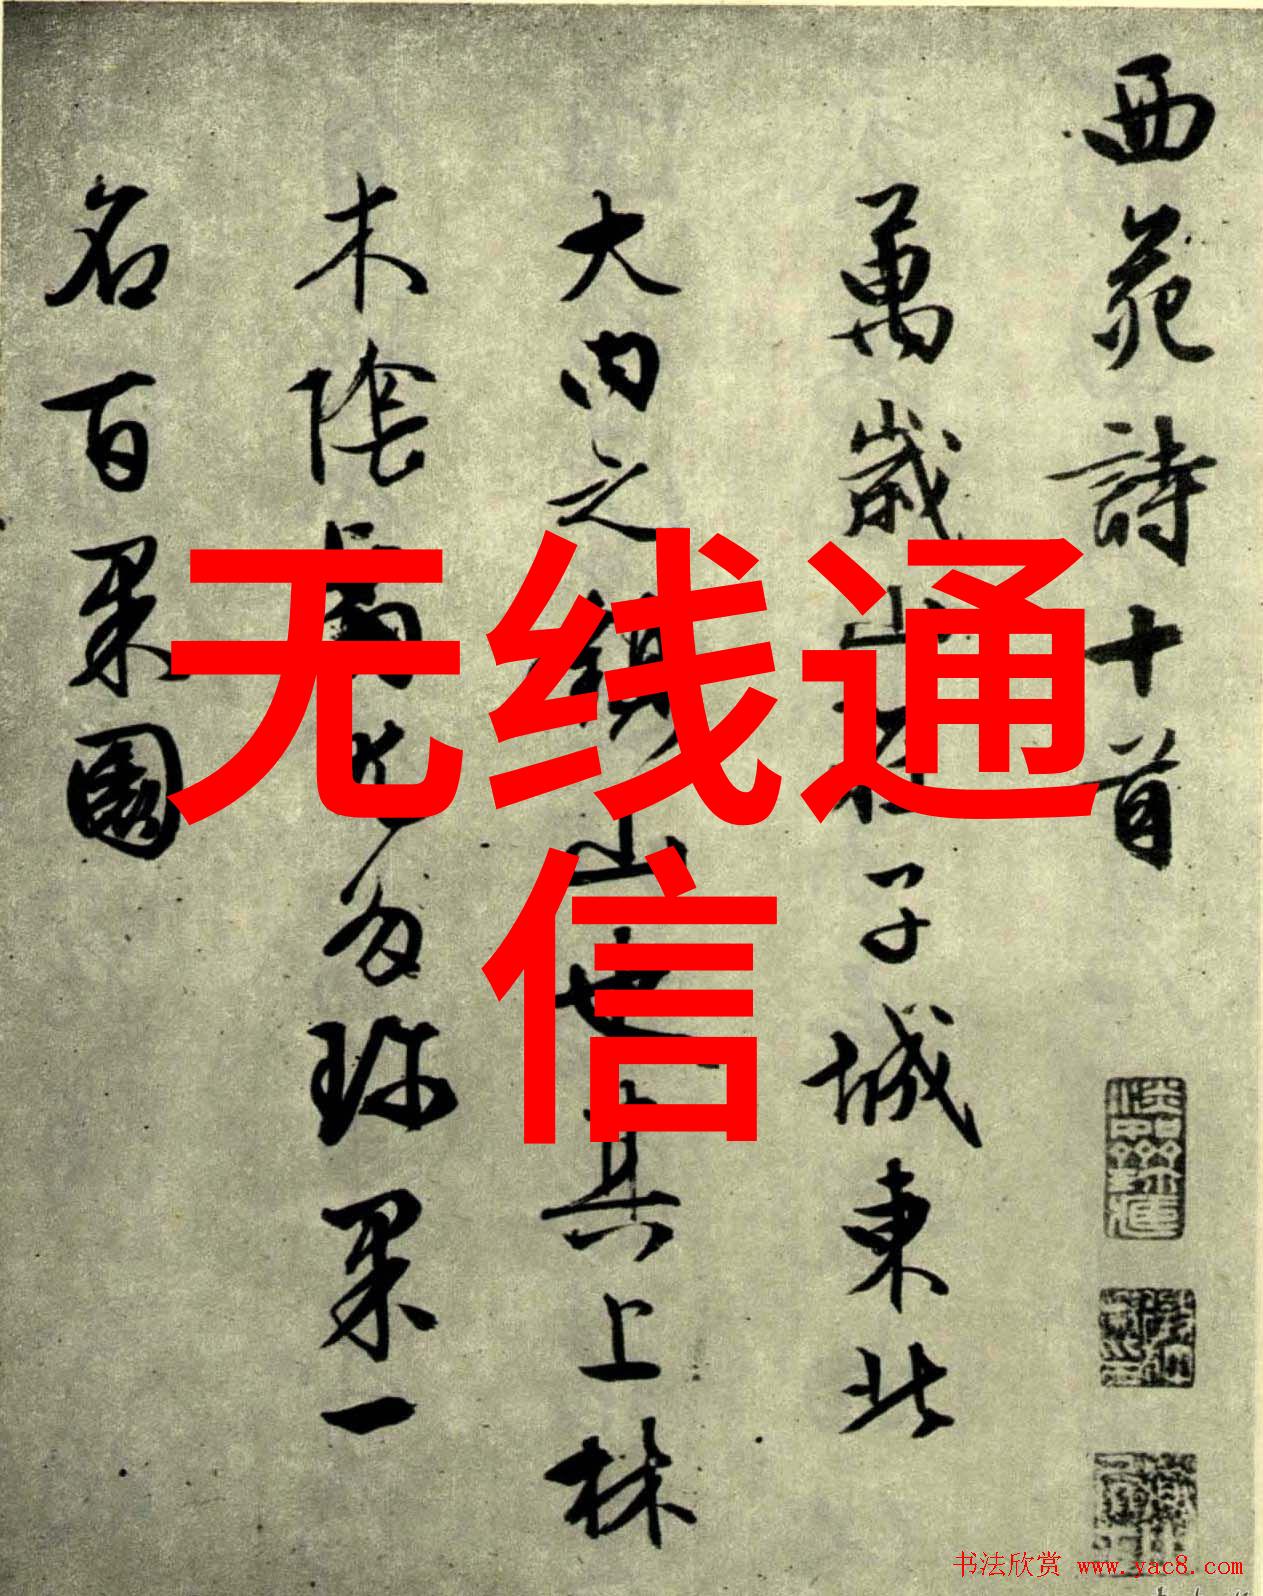 西苑詩十首
萬歲山在子城東北
大内之鎮山也其上林
木陰翳尤多珍果一
名百果園
无线通
信
书法欣赏 www.yac8.com